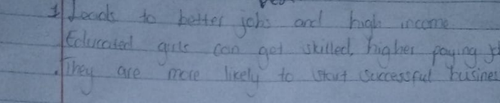 1 Leads to better jobs and high income
Educated girls can get skilled, higher paying
They are more likely to start successful